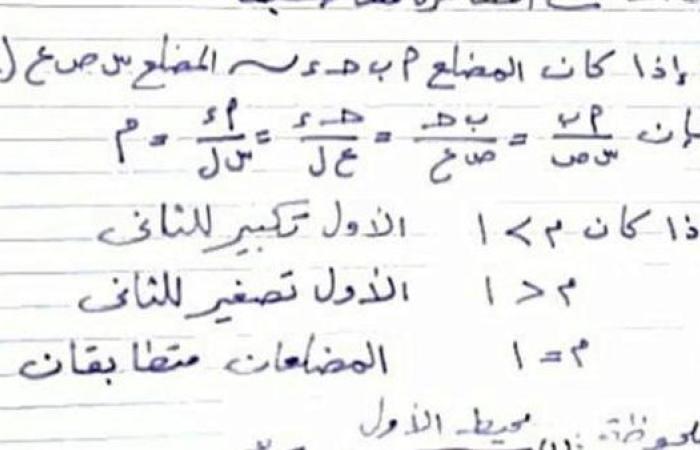 إذا كان المضلع م ب حـ ء ~ المضلع س ص ع
م ب / س ص = ب حـ / ص ع = حـ ء / ع ل = م ء / س ل = م
ذا كان م > ١ الأول تكبير للثانى
م < ١ الأول تصغير للثانى
م = ١ المضلعان متطابقان
محيط الأول